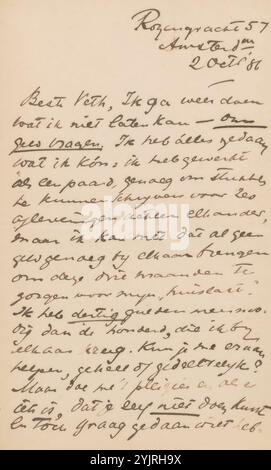 Rozengracht 57
Amsterdam
2 Oct 86
Beste Veth, Ik ga weer doen
wat ik niet laten kan — om
geld vragen. Ik heb álles gedaan
wat ik kón; ik heb gewerkt
als een paard, genoeg om stukken
te kunnen schrijven voor zes
afleveringen achter elkander,
maar ik kan niet dat al geen
geld genoeg bij elkaar brengen
om deze drie maanden te
zorgen voor mijn
Ik heb dertig gulden
dig dan de honderd, die ik bij
elkaar kreeg. Kun je me eraan
helpen, geheel of gedeeltelijk?
Maar doe me 't plezier en als
dat je zeg niet doen kunt
en toch graag gedaan
a
alamy
Image ID: 2CYJRH9X
www.alamy.com